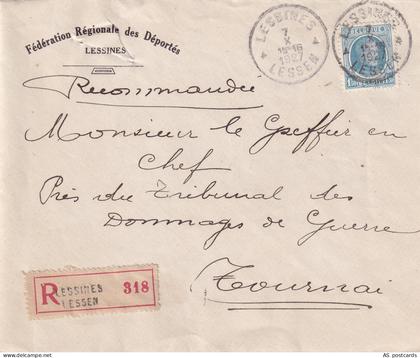 Fédération Régionale des Déportés
LESSINES
LESSINES
7
X
15-16
1927
LESSEN
LESSINES
LESSEN
Recommandée
Monsieur le Greffier en
Chef
Près du Tribunal des
Dommages de Guerre
Tournai
R
LESSINES
LESSEN
318
AS. postcards